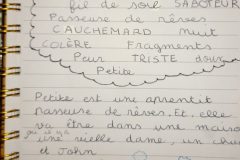 fil de soie SABOTEUR
Passeuse de rêves
CAUCHEMARD nuit
COLÈRE Fragments
Peur TRISTE doux
Petite
Petite est une apprentit
passeuse de rêves. Et, elle
va être dans une maison
qui il y a
une vieille dame, un chien
et John